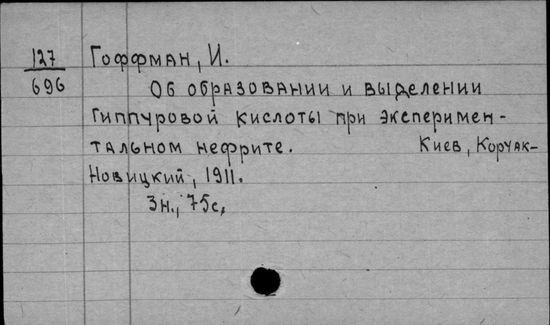 127
696
Гоффман, И.
Об образовании и выделении
гиппуровой кислоты при эксперимен-
тальном нефрите. Киев, Корчак-
Новицкий, 1911.
3н., 75с,